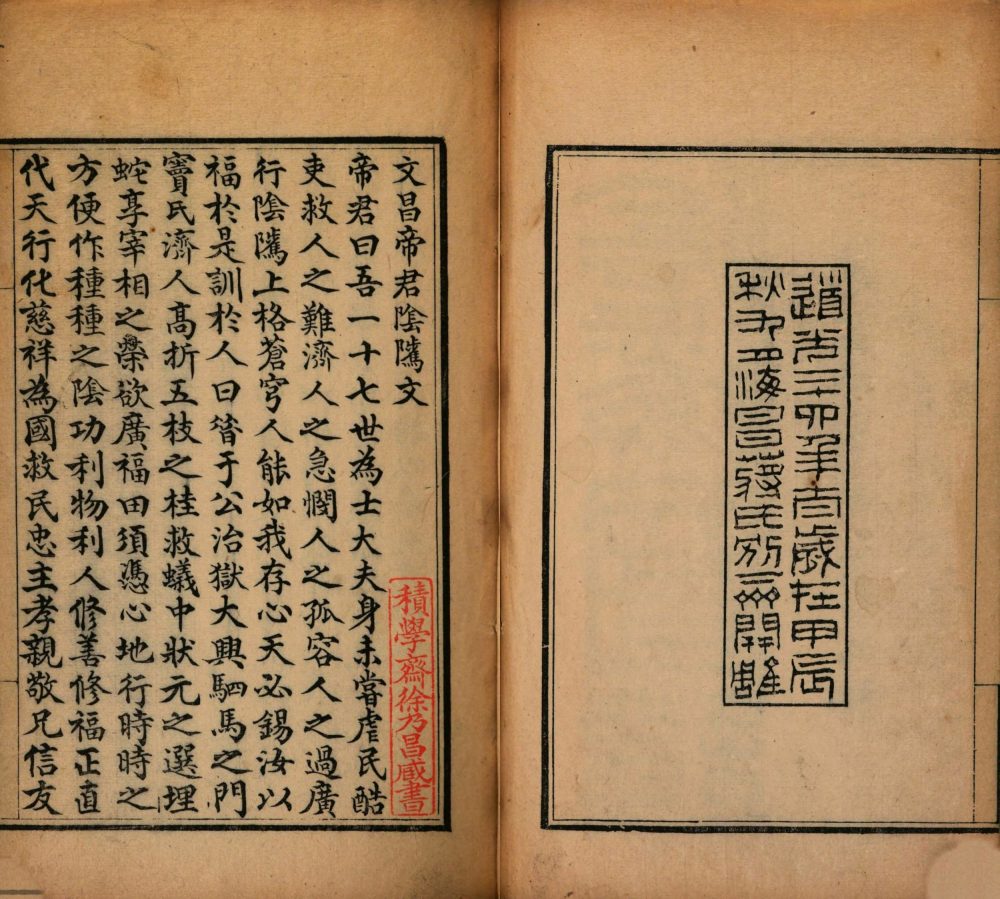 道光二十四年太歲在甲辰
秋九月海昌蔣氏別下齋開雕
文昌帝君陰騭文
積學齋徐乃昌藏書
帝君曰吾一十七世為士大夫身未嘗虐民酷
吏救人之難濟人之急憫人之孤容人之過廣
行陰騭上格蒼穹人能如我存心天必錫汝以
福於是訓於人曰昝于公治獄大興駟馬之門
竇氏濟人高折五枝之桂救蟻中狀元之選埋
蛇享宰相之榮欲廣福田須憑心地行時時之
方便作種種之陰功利物利人修善修福正直
代天行化慈祥為國救民忠主孝親敬兄信友